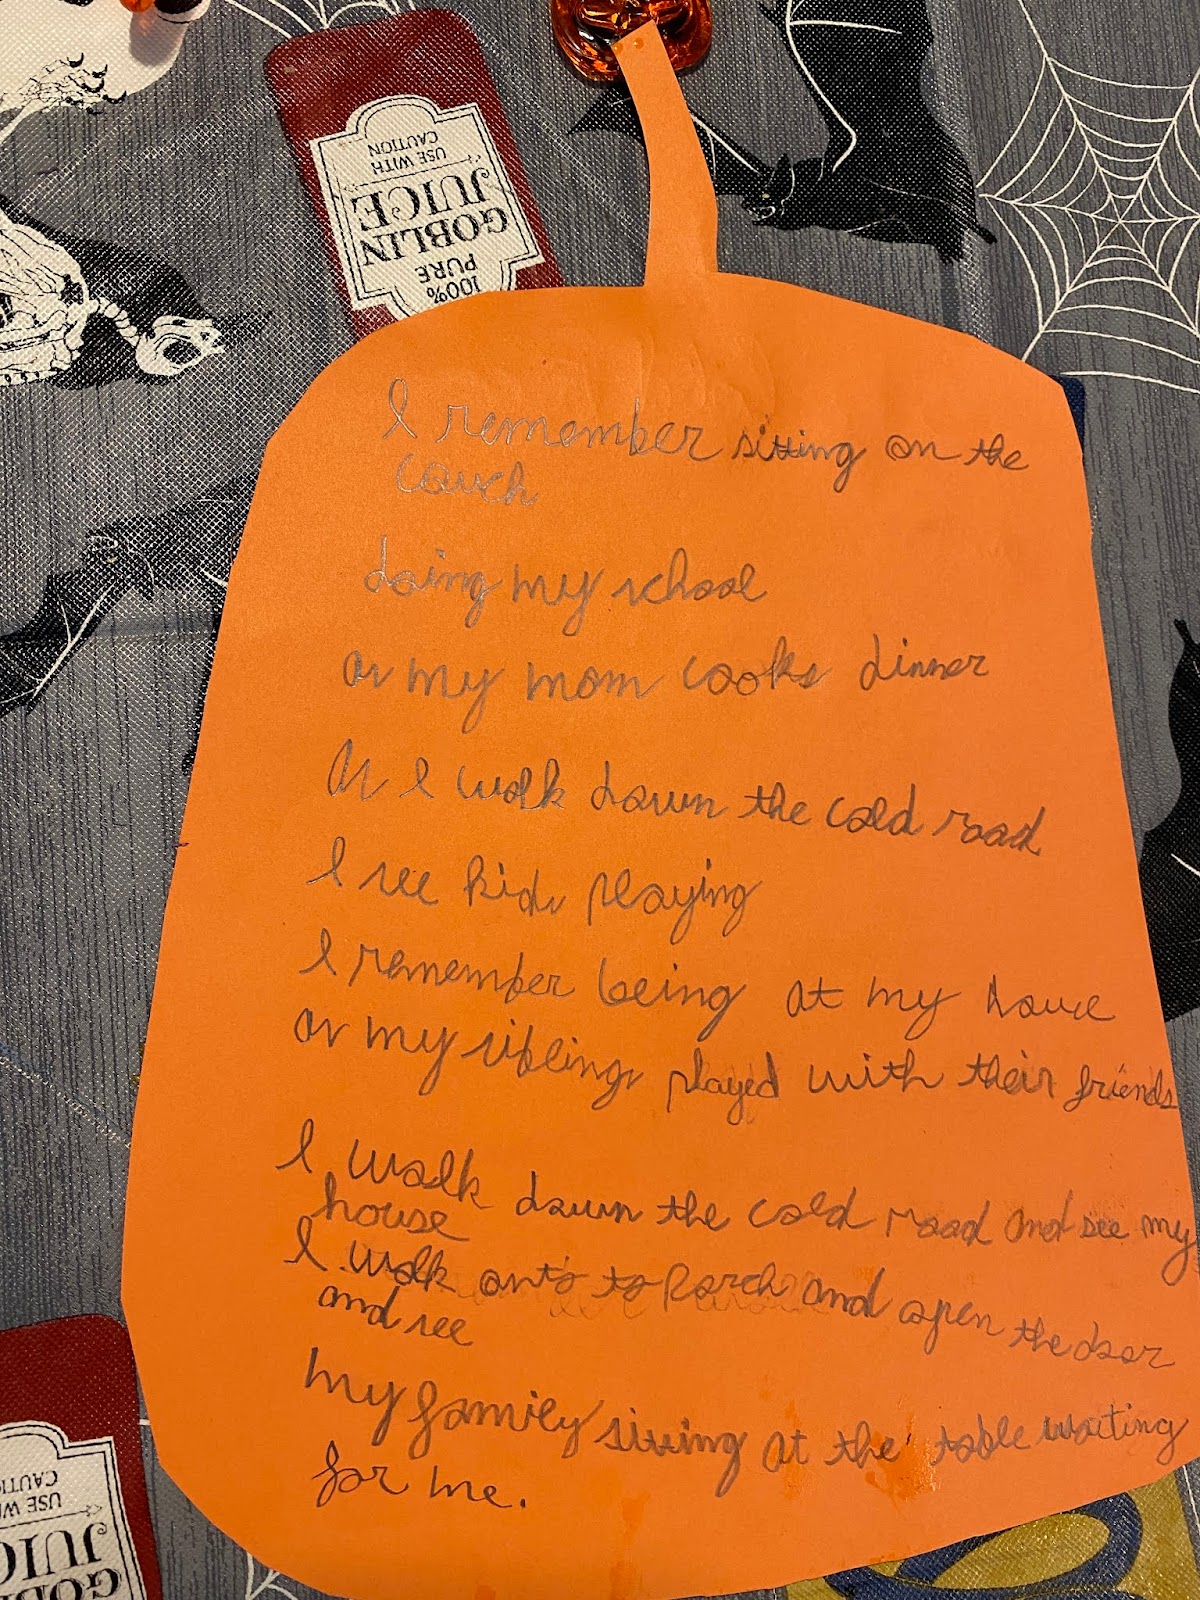 100%
PURE
GOBLIN
JUICE
USE WITH
CAUTION
I remember sitting on the
couch
doing my school
as my mom cooks dinner
As I walk down the cold road
I see kids playing
I remember being at my house
as my siblings played with their friends
I walk down the cold road and see my
house
I walk onto to Porch and open the door
and see
my family sitting at the table waiting
for me.
JUIC
USE WI
CAUTIO